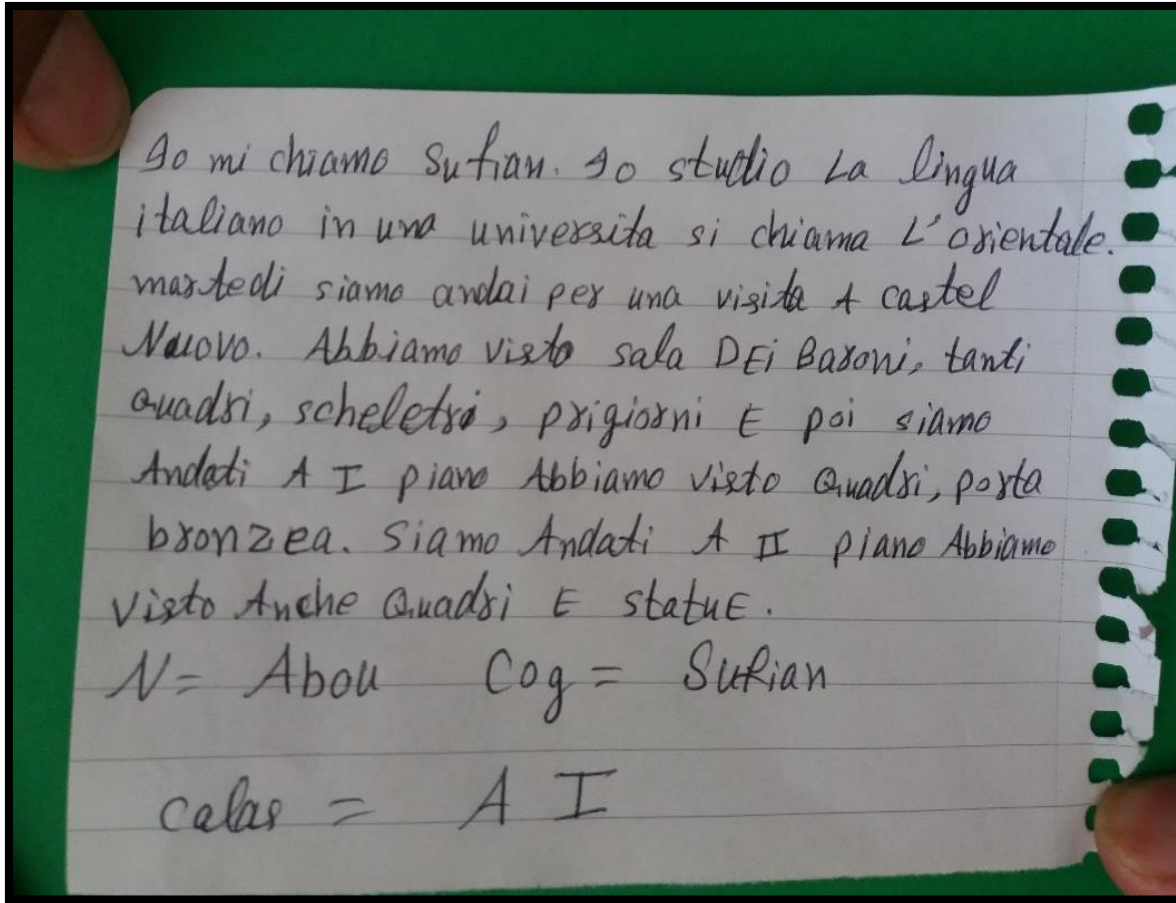 Io mi chiamo Sufian. Io studio La lingua
italiano in una universita si chiama L'orientale.
martedi siamo andai per una visita A castel
Nuovo. Abbiamo visto sala DEi Baroni, tanti
Quadri, scheletri, prigiorni E poi siamo
Andati A I piano Abbiamo visto Quadri, porta
bronzea. Siamo Andati A II piano Abbiamo
visto Anche Quadri E statuE.
N= Abou Cog = Sufian
calas = A I